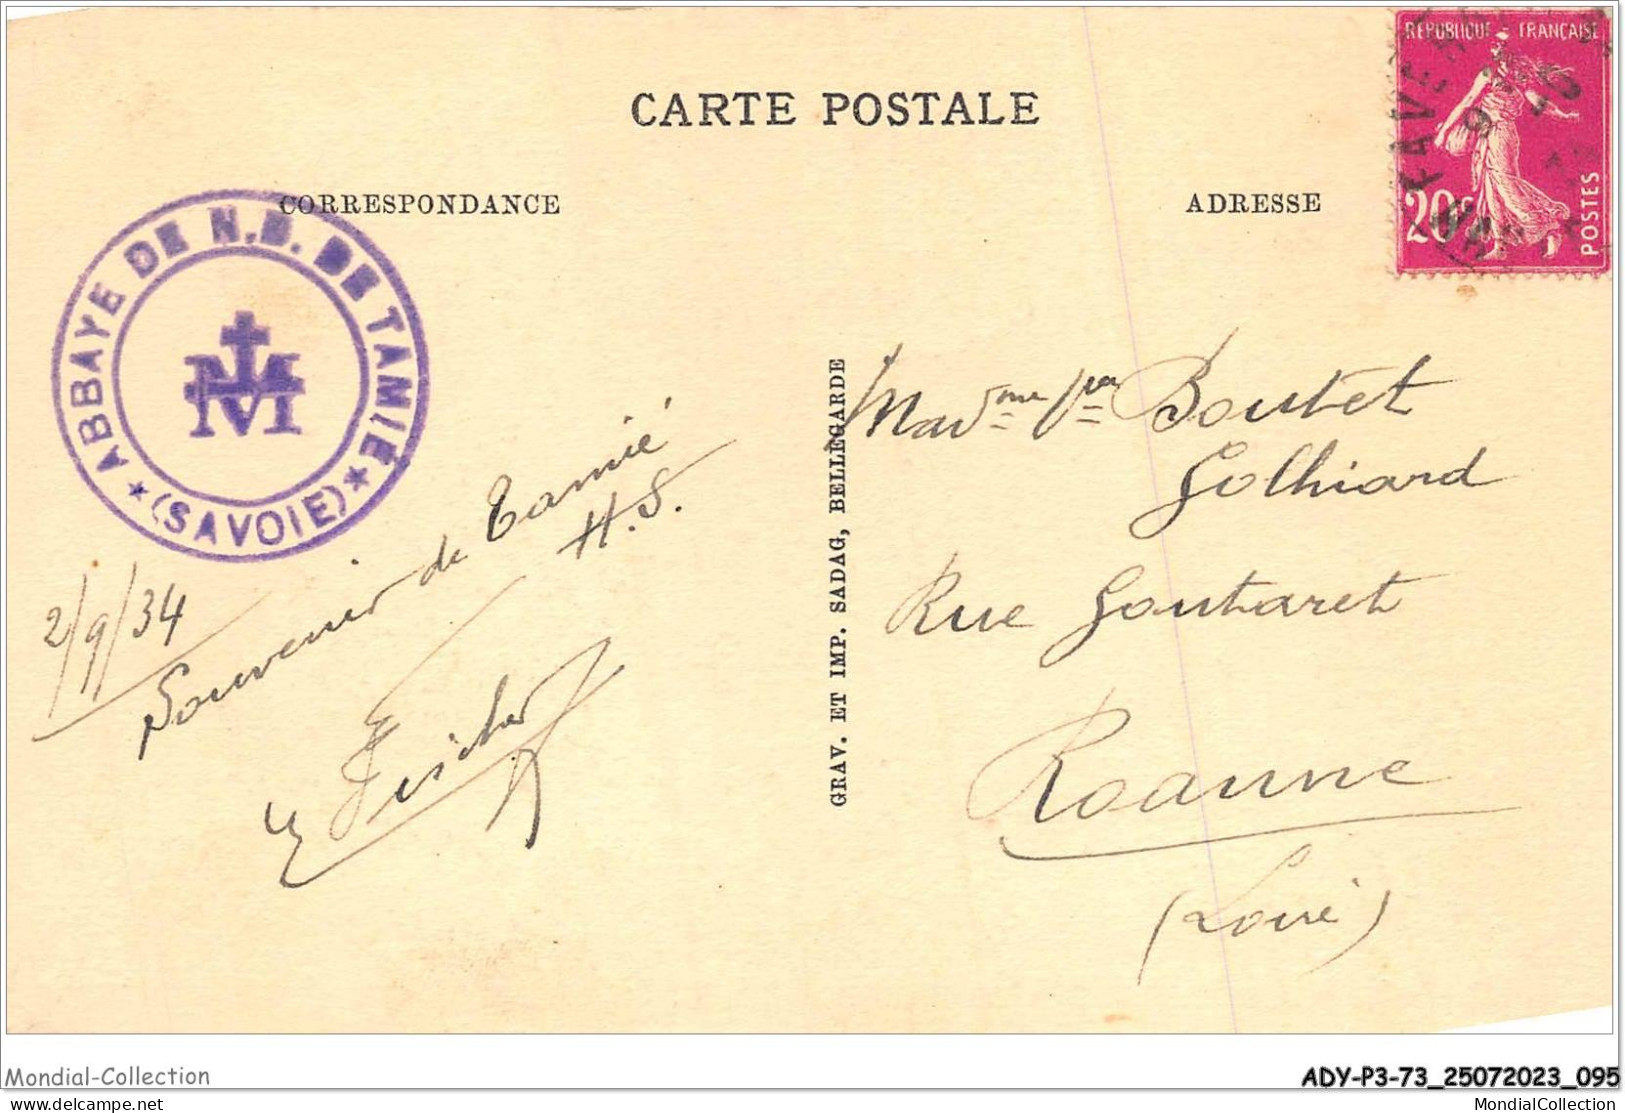 CARTE POSTALE
CORRESPONDANCE
ADRESSE
REPUBLIQUE FRANÇAISE
20c
POSTES
FAVER
ABBAYE DE N.D. DE TAMIÉ
(SAVOIE)
2/9/34
Souvenir de Tamié
H.S.
GRAV. ET IMP. SADAG, BELLEGARDE
Madme Vve Boutet
Golhiard
Rue Goutaret
Roanne
(Loire)
Mondial-Collection
ADY-P3-73_25072023_095
delcampe.net
MondialCollection